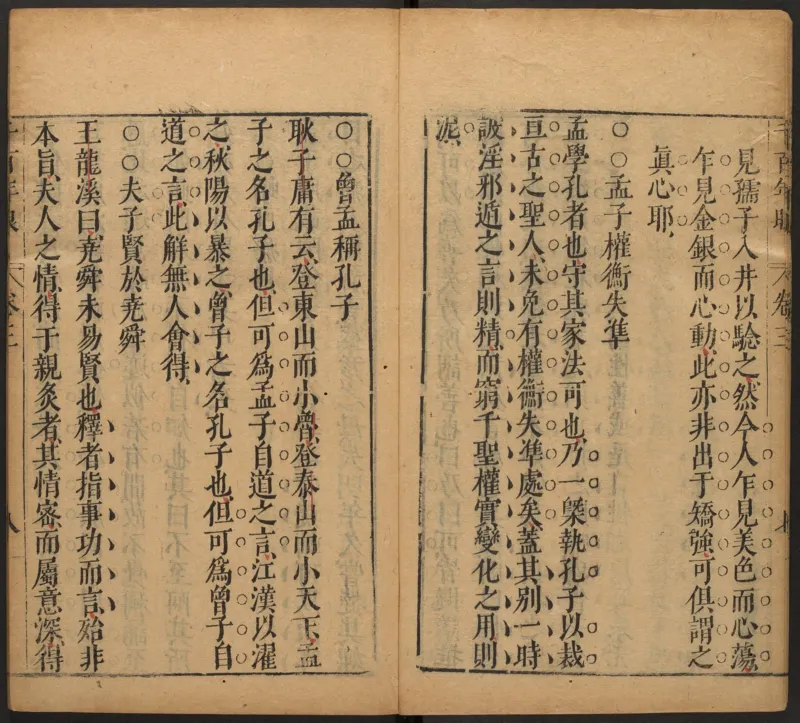 見孺子入井以驗之然今人乍見美色而心蕩
乍見金銀而心動此亦非出于矯強可俱謂之
眞心耶
○○孟子權衡失準
孟學孔者也守其家法可也乃一槩執孔子以裁
亘古之聖人未免有權衡失準處矣蓋其別一時
詖淫邪遁之言則精而窮千聖權實變化之用則
泥
○○曾孟稱孔子
耿子庸有云登東山而小魯登泰山而小天下孟
子之名孔子也但可爲孟子自道之言江漢以濯
之秋陽以暴之曾子之名孔子也但可爲曾子自
道之言此解無人會得
○○夫子賢於堯舜
王龍溪曰堯舜未易賢也釋者指事功而言殆非
本旨夫人之情得于親炙者其情密而屬意深得